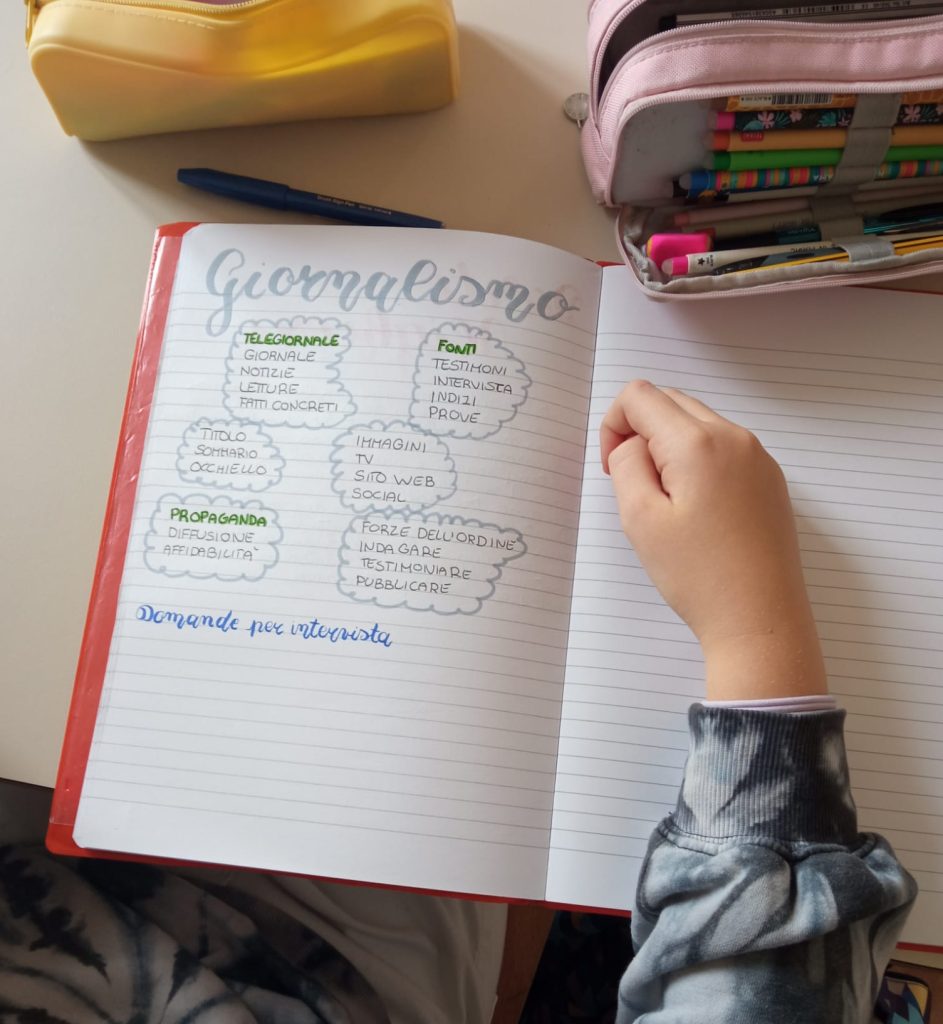 Giornalismo
TELEGIORNALE
GIORNALE
NOTIZIE
LETTURE
FATTI CONCRETI
FONTI
TESTIMONI
INTERVISTA
INDIZI
PROVE
TITOLO
SOMMARIO
OCCHIELLO
IMMAGINI
TV
SITO WEB
SOCIAL
PROPAGANDA
DIFFUSIONE
AFFIDABILITA'
FORZE DELL'ORDINE
INDAGARE
TESTIMONIARE
PUBBLICARE
Domande per intervista